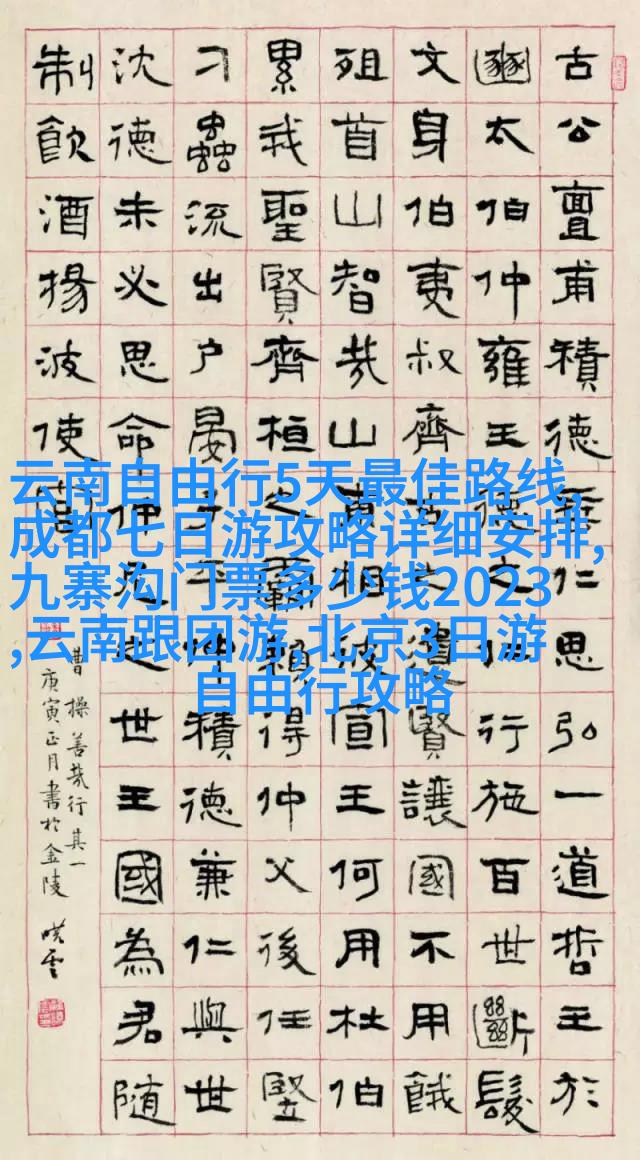 古公亶甫積德垂仁思弘一道哲王於
豳太伯仲雍王德之仁行施百世斷髮
文身伯夷叔齊古之遺賢讓國不用餓
殂首山智哉山甫相彼宣王何用杜伯
累我聖賢齊桓之霸賴得仲父後任豎
刁蟲流出户晏子平仲積德兼仁與世
沈德未必思命仲尼之世王國為君隨
制飲酒揚波使官
曹操善哉行其一
庚寅正月書於金陵
云南自由行5天最佳路线,
成都七日游攻略详细安排,
九寨沟门票多少钱2023
,云南跟团游,北京3日游
自由行攻略